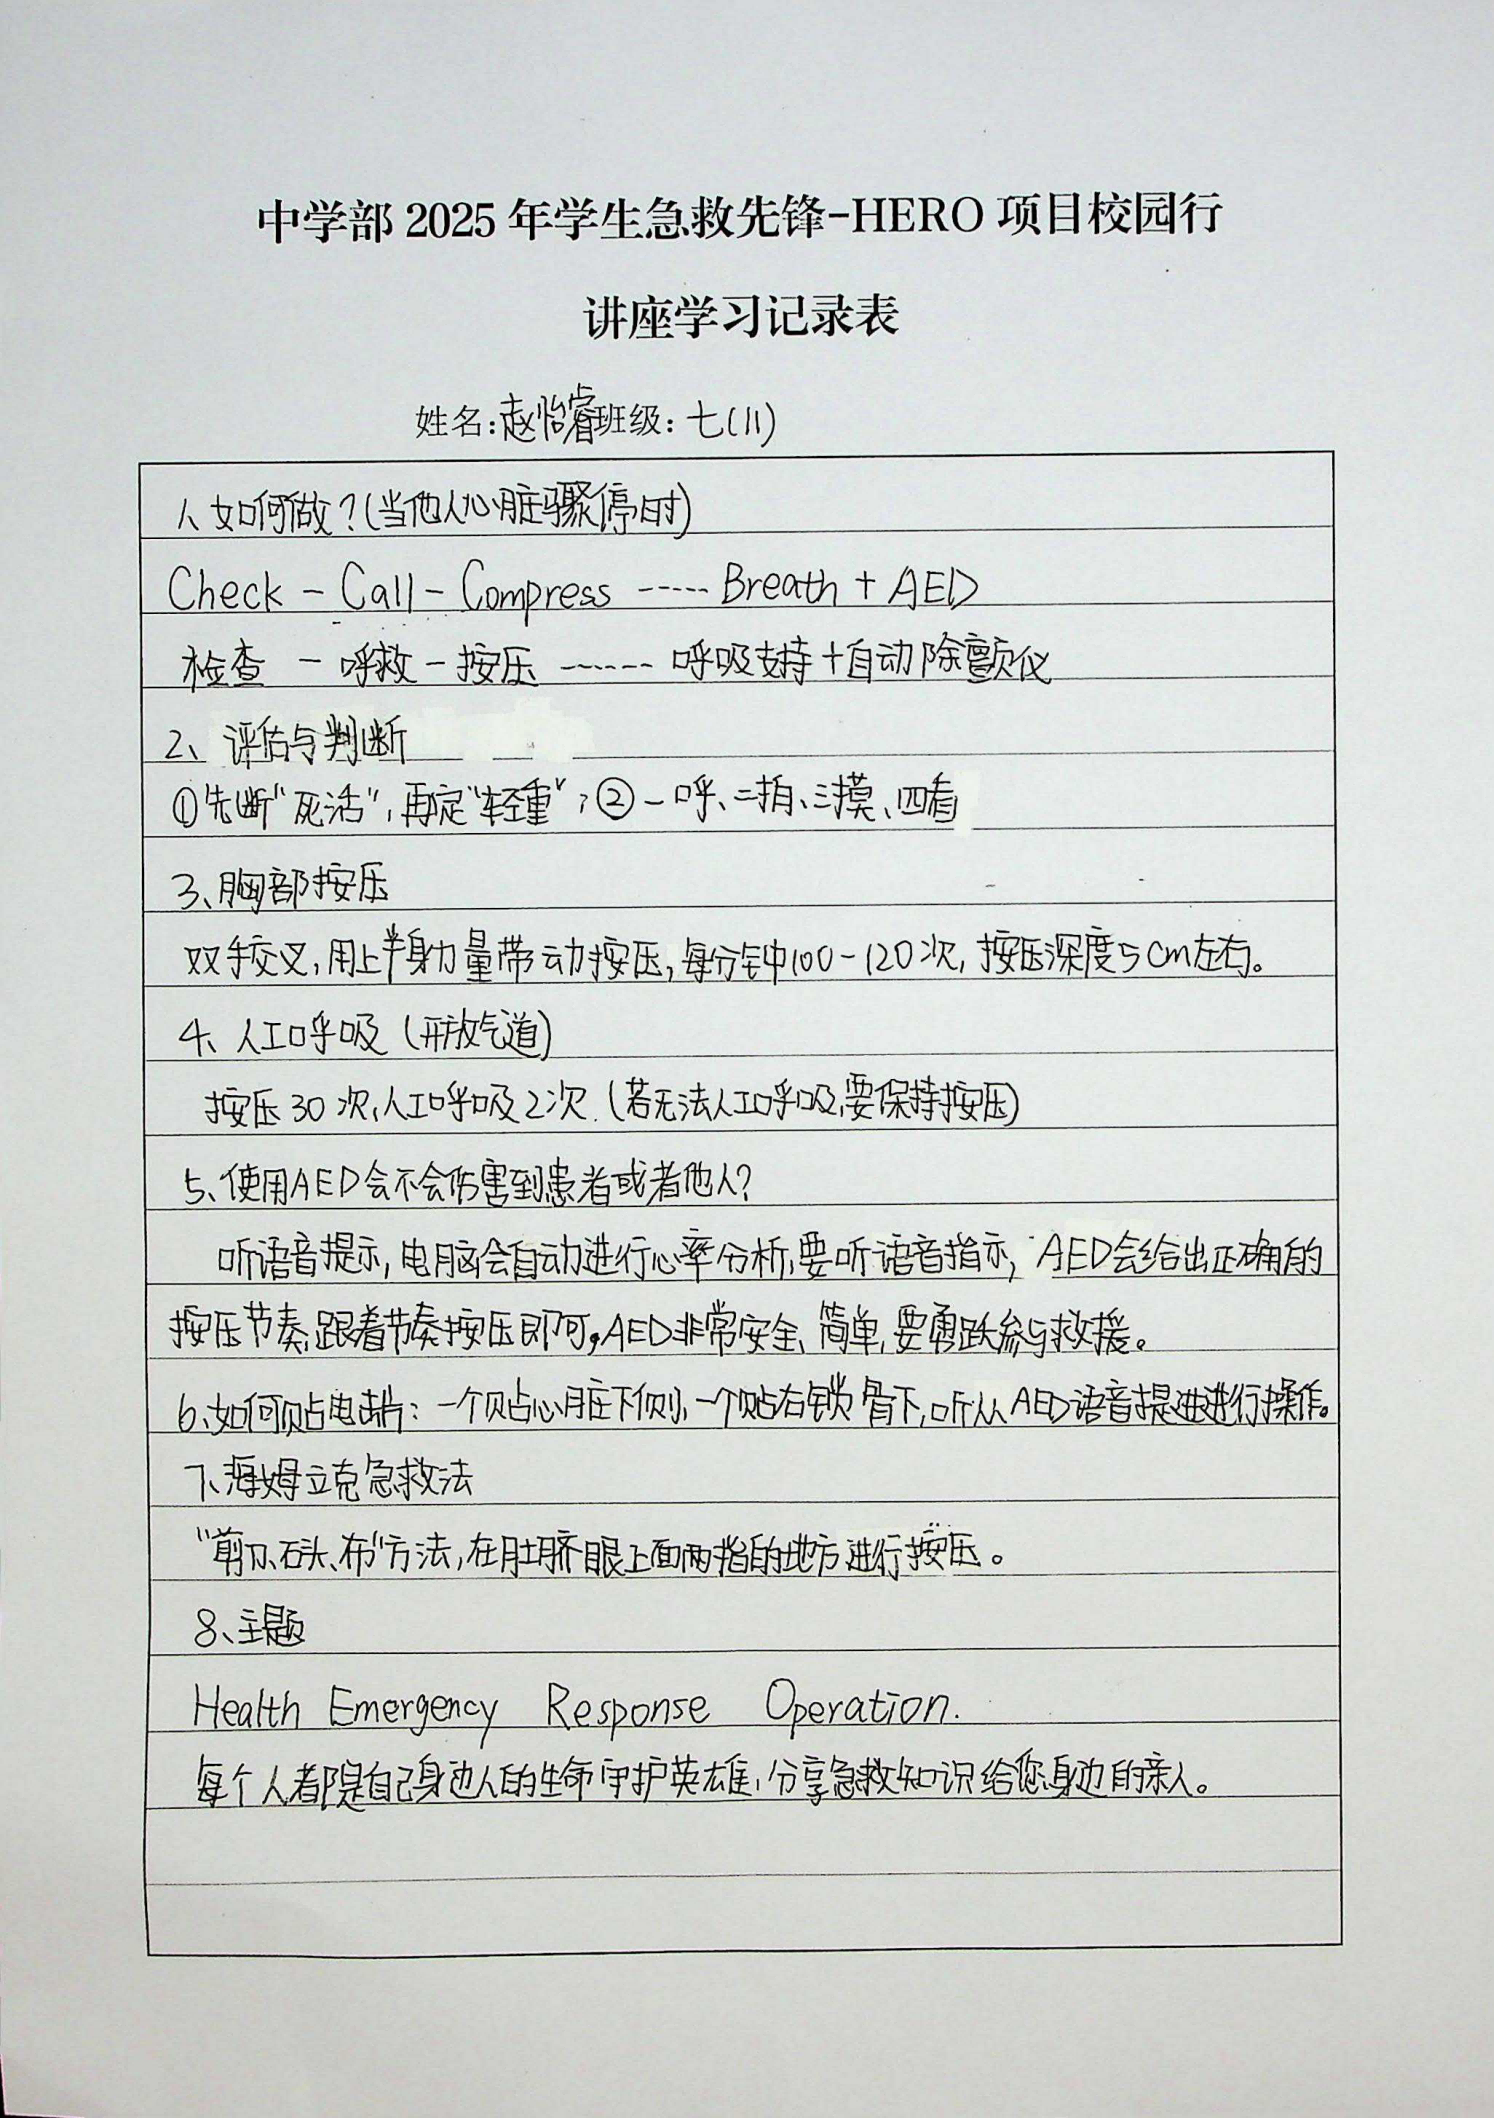 中学部 2025 年学生急救先锋-HERO 项目校园行
讲座学习记录表
姓名:赵怡睿班级:七(11)
1、如何做?(当他人心脏骤停时)
Check - Call - Compress ----- Breath + AED
检查 - 呼救 - 按压 ------ 呼吸支持+自动除颤仪
2、评估与判断
①先断"死活",再定"轻重";②一呼、二拍、三摸、四看
3、胸部按压
双手交叉,用上半身力量带动按压,每分钟100-120次,按压深度5cm左右。
4、人工呼吸(开放气道)
按压30次,人工呼吸2次.(若无法人工呼吸,要保持按压)
5、使用AED会不会伤害到患者或者他人?
听语音提示,电脑会自动进行心率分析,要听语音指示,AED会给出正确的
按压节奏,跟着节奏按压即可,AED非常安全、简单,要勇跃参与救援。
6、如何贴电击片:一个贴心脏下侧,一个贴右锁骨下,听从AED语音提进行操作。
7、海姆立克急救法
"剪刀、石头、布"方法,在肚脐眼上面两指的地方进行按压。
8、主题
Health Emergency Response Operation.
每个人都是自己身边人的生命守护英雄,分享急救知识给您身边的亲人。